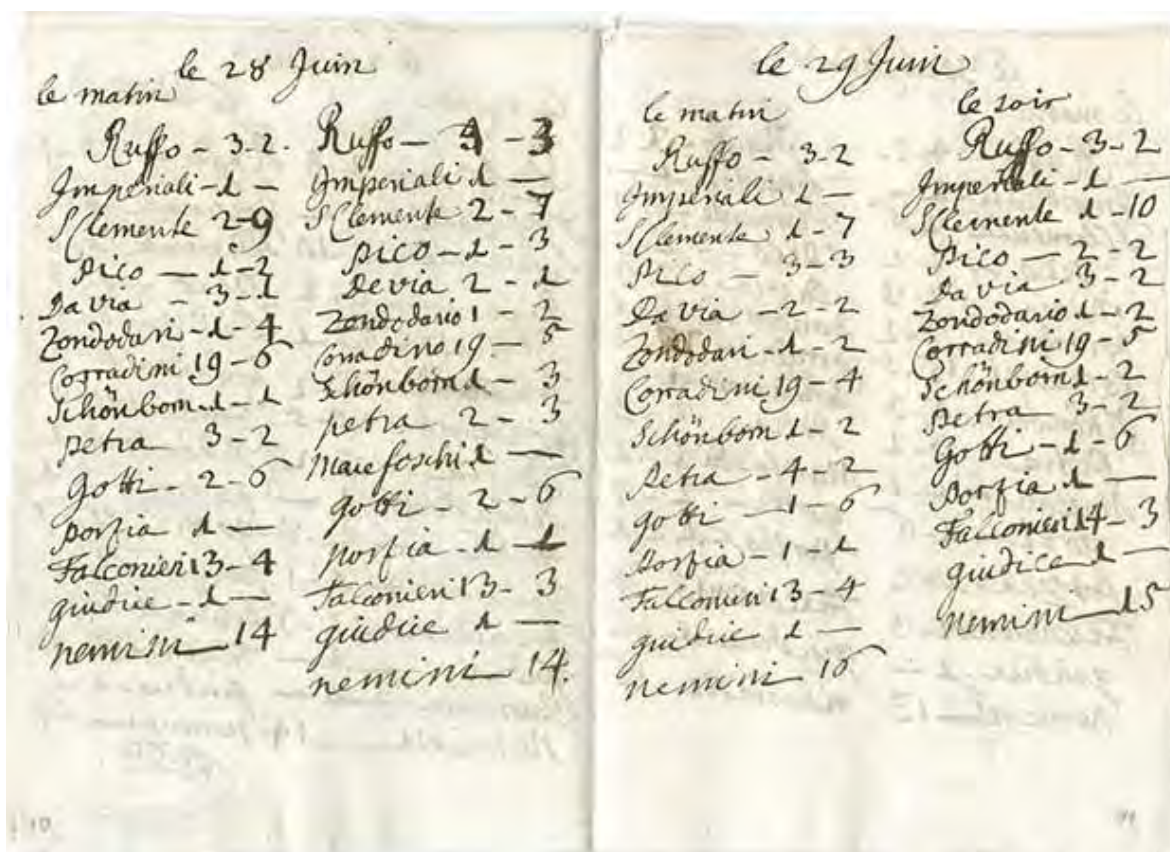 le 28 Juin
le matin
Ruffo - 3-2.
Imperiali - 1 -
S Clemente 2-9
pico — 1-2
Da via - 3-1
Zondodari - 1-4
Corradini 19-6
Schönborn 1-1
petra 3-2
Gotti - 2-6
porzia 1 —
Falconieri 13-4
giudice - 1 —
nemini 14
Ruffo — 4 - 3
Imperiali 1 —
S Clemente 2-7
pico — 1-3
Devia 2-1
Zondodario 1-2
Corradino 19-5
Schönborn 1-3
petra 2-3
Marefoschi 1 —
gotti - 2-6
porzia - 1-1
Falconieri 13-3
giudice 1 —
nemini 14.
10
le 29 Juin
le matin
Ruffo - 3-2
Imperiali 1 —
S Clemente 1-7
pico — 3-3
Da via - 2-2
Zondodari - 1-2
Corradini 19-4
Schönborn 1-2
petra - 4-2
gotti — 1-6
porzia - 1-1
Falconieri 13-4
giudice 1 —
nemini — 16
le soir
Ruffo - 3-2
Imperiali - 1 —
S Clemente 1-10
pico — 2-2
Da via 3-2
Zondodario 1-2
Corradini 19-5
Schönborn 1-2
petra 3-2
Gotti - 1-6
porzia 1 —
Falconieri 14-3
giudice 1 —
nemini — 15